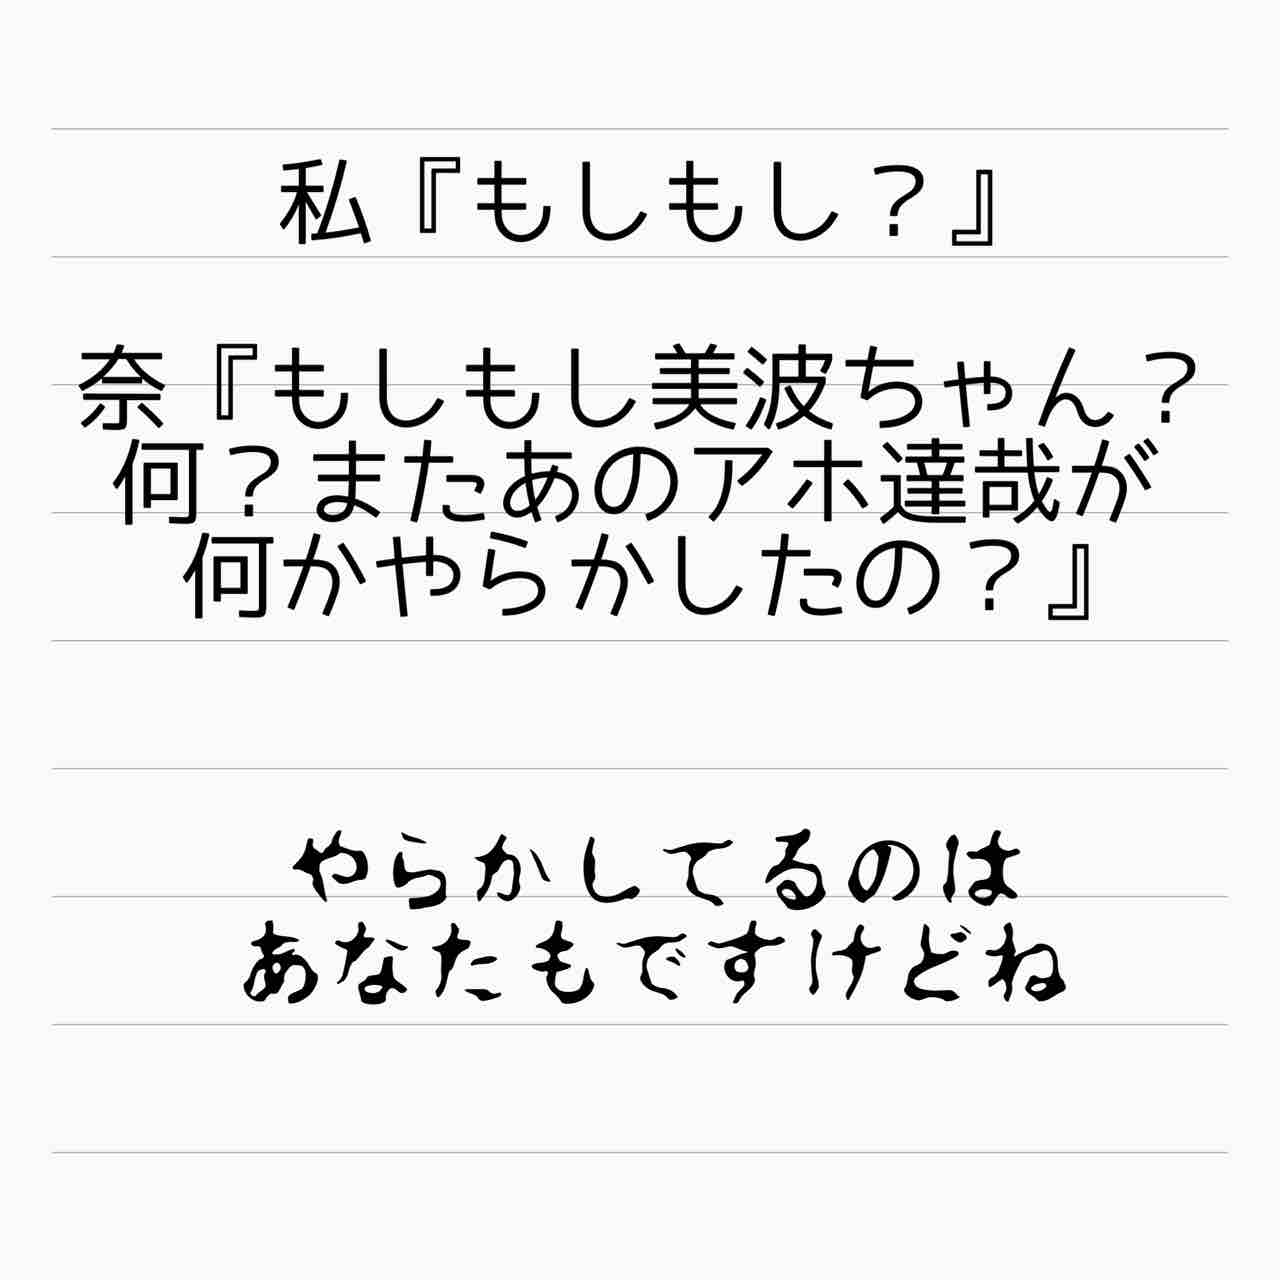 私『もしもし？』
奈『もしもし美波ちゃん？
何？またあのアホ達哉が
何かやらかしたの？』
やらかしてるのは
あなたもですけどね